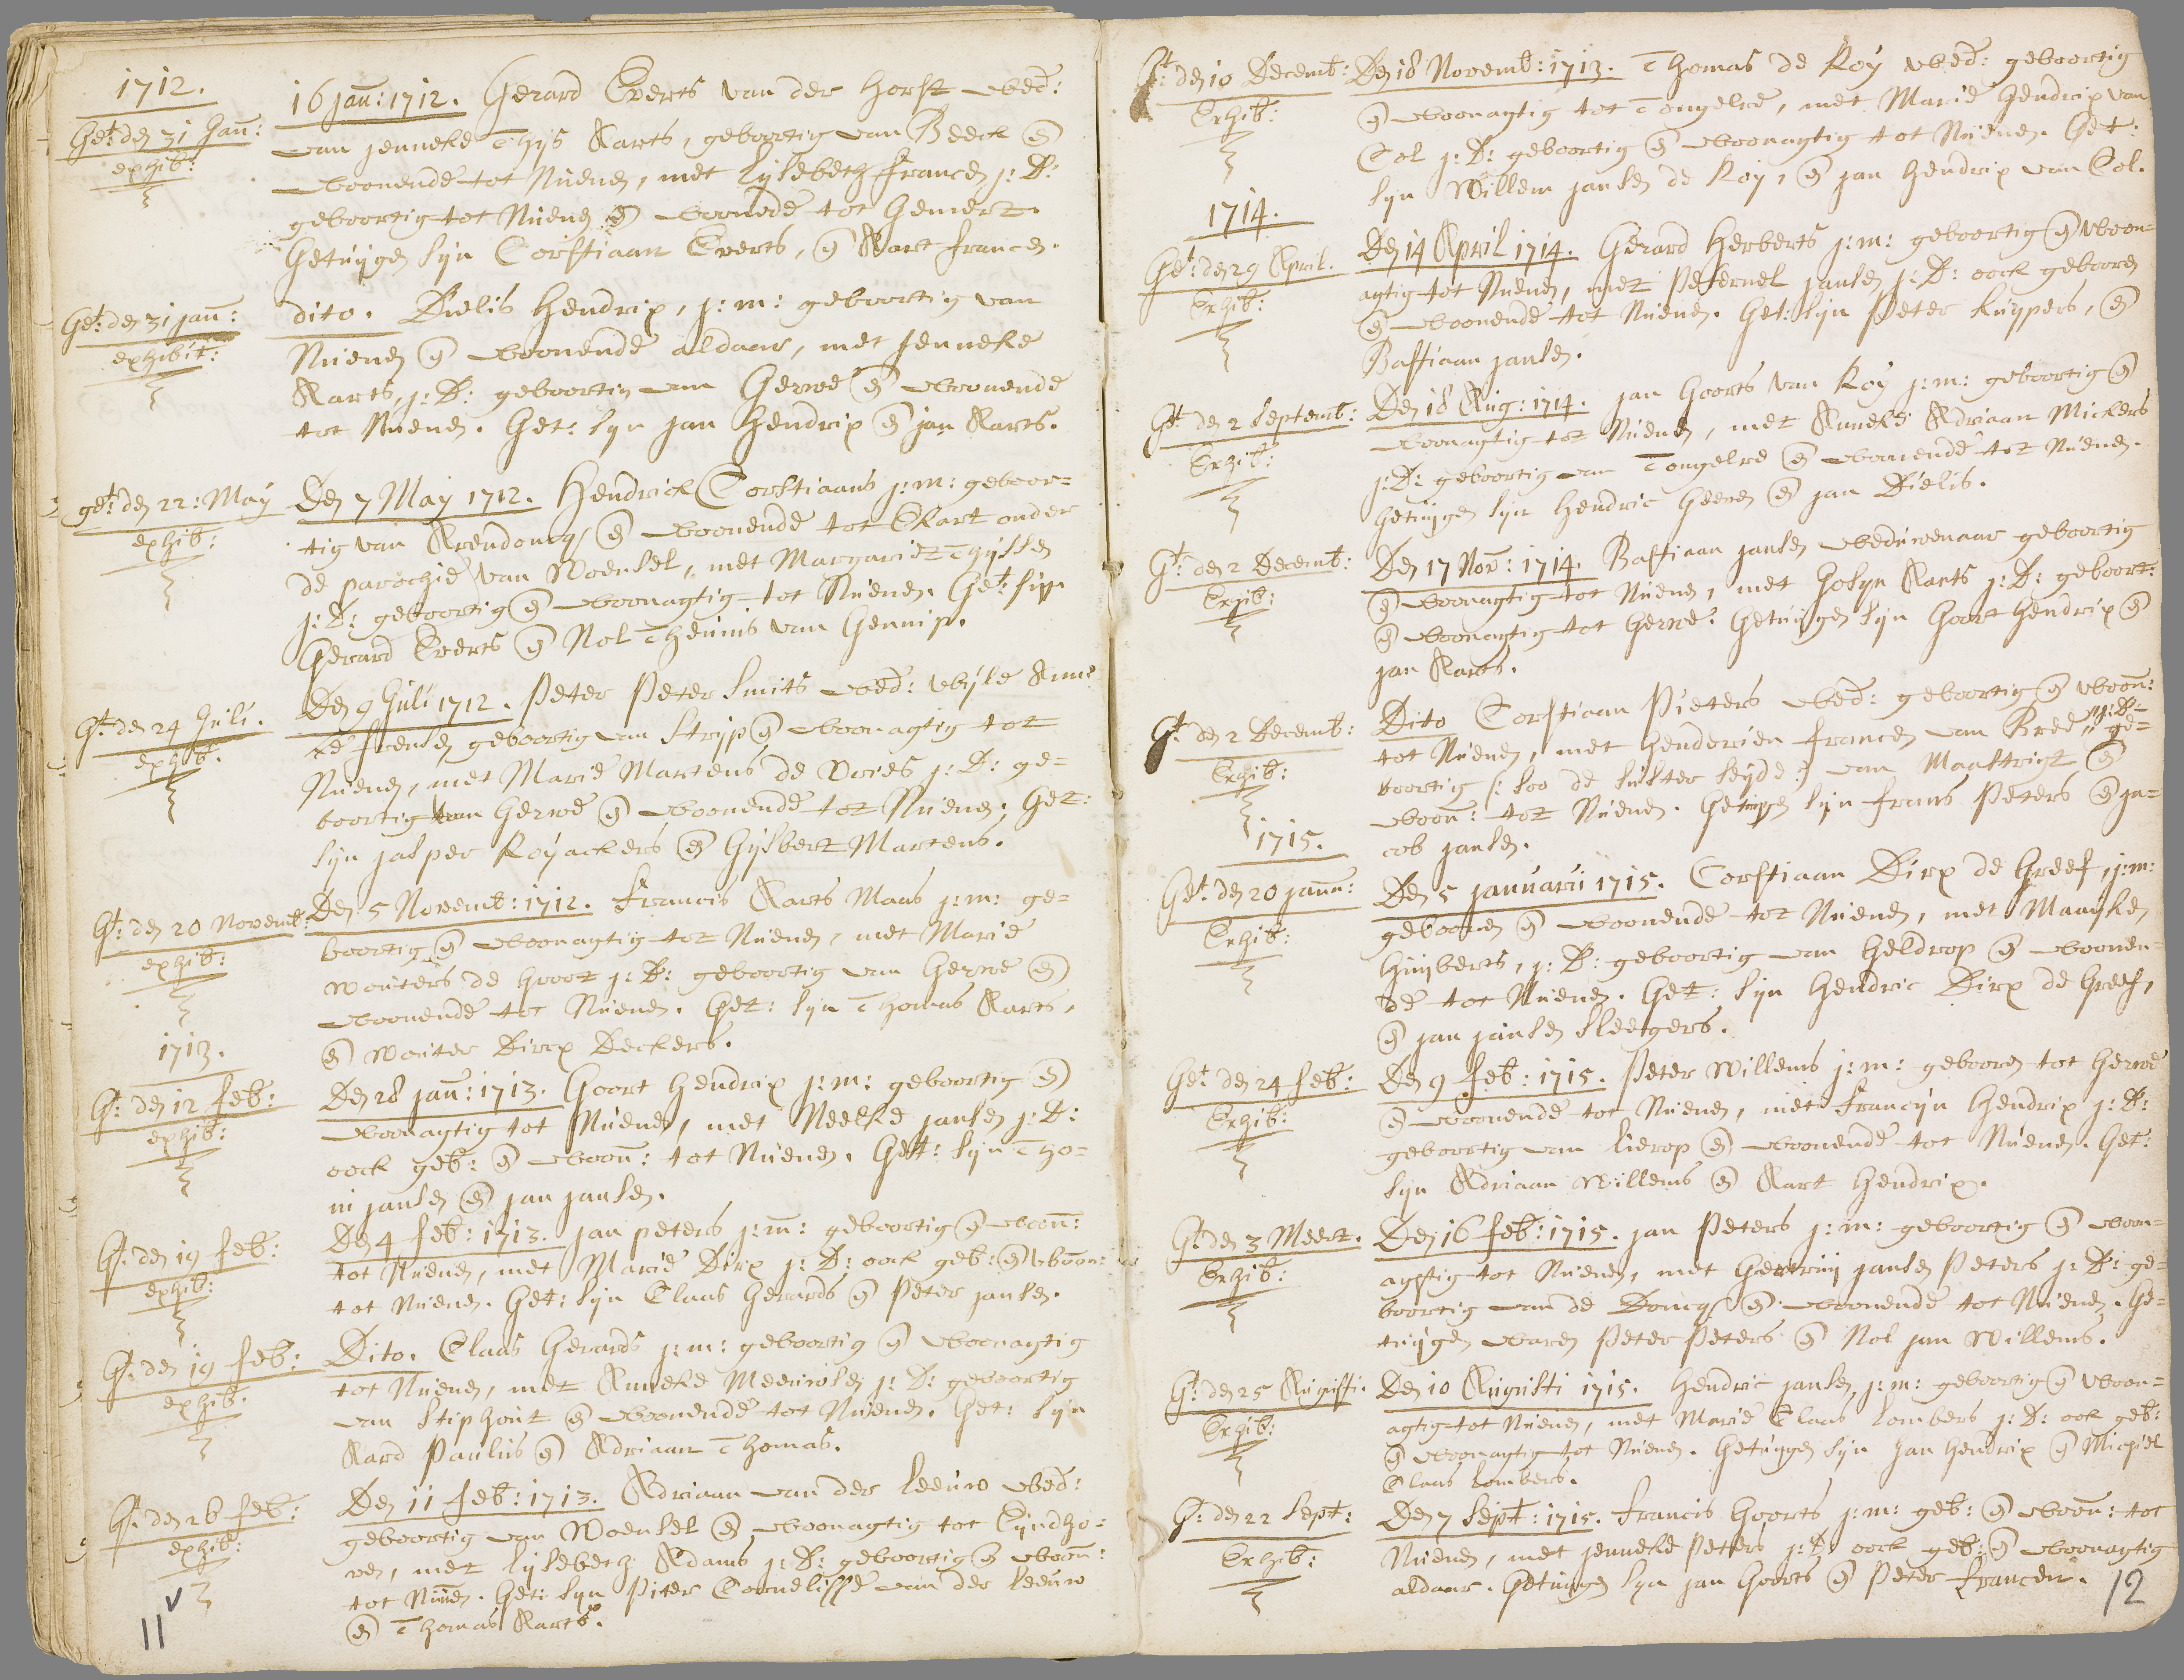 1712.
Get: den 31 Jañ:
exhib:
16 jañ: 1712. Gerard Everts van der horst wed:
van jenneke Thijs Aarts, geboortig van Beeck en
woonende tot Nuenen, met Lijsebeth francen j: D:
geboortig tot Nuenen en woonde tot Gemert.
Getuijgen sijn Corstiaan Everts, en Aart francen.
Get: den 31 jañ:
exhibit:
dito. Dielis Hendrix, j: m: geboortig van
Nuenen en woonende aldaar, met jenneke
Aarts, j: D: geboortig van Gerwe en woonende
tot Nuenen. Get: sijn Jan Hendrix en jan Aarts.
get: den 22: May
exhib:
Den 7 May 1712. Hendrick Corstiaans j: m: geboor=
tig van Arendoncq en woonende tot Ekart onder
de parochie van Woensel, met Margariet Thijssen
j: D: geboortig en woonagtig tot Nuenen. Get: sijn
Gerard Everts en Nol Theunis van Gennip.
Gt: den 24 Juli.
exhib:
Den 9 Juli 1712. Peter Peter Smits wed: wijle Anne
ke frensen geboortig van Strijp en woonagtig tot
Nuenen, met Marie Martens de Vries j: D: ge=
boortig van Gerwe en woonende tot Nuenen. Get:
sijn jasper Royackers en Gijsbert Martens.
Gt: den 20 Novemb:
exhib:
Den 5 Novemb: 1712. Francis Aarts Maas j: m: ge=
boortig en woonagtig tot Nuenen, met Marie
Wouters de Groot j: D: geboortig van Gerwe en
woonende tot Nuenen. Get: sijn Thomas Aarts,
en Wouter Dircx Deckers.
1713.
Gt: den 12 feb:
exhib:
Den 28 jañ: 1713. Goort Hendrix j: m: geboortig en
woonagtig tot Nuenen, met Neelke jansen j: D:
oock geb: en wooñ: tot Nuenen. Get: sijn Tho=
ni jansen en jan jansen.
Gt: den 19 feb:
exhib:
Den 4 feb: 1713. jan peters j: m: geboortig en wooñ:
tot Nuenen, met Marie Dirx j: D: oock geb: en wooñ:
tot Nuenen. Get: sijn Claas Gerards en Peter jansen.
Gt: den 19 feb:
exhib.
Dito. Claas Gerards j: m: geboortig en woonagtig
tot Nuenen, met Anneke Meeuwsen j: D: geboortig
van Stiphout en woonende tot Nuenen. Get: sijn
Aard Paulus en Adriaan Thomas.
Gt: den 26 feb:
exhib:
Den 11 feb: 1713. Adriaan van der Leeuw wed:
geboortig van Woensel en woonagtig tot Eijndho=
ven, met Lijsebeth Adams j: D: geboortig en wooñ:
tot Nuenen. Get: sijn Piter Cornelisse van der Leeuw
en Thomas Aarts.
11
Gt: den 10 Decemb:
Exhib:
Den 18 Novemb: 1713. Thomas de Roy wed: geboortig
en woonagtig tot Tongelre, met Marie Hendrix van
Col j: D: geboortig en woonagtig tot Nuenen. Get:
sijn Willem jansen de Roy, en jan Hendrix van Col.
1714.
Get: den 29 April.
Exhib:
Den 14 April 1714. Gerard Herberts j: m: geboortig en woon=
agtig tot Nuenen, met Peternel jansen j: D: oock gebooren
en woonende tot Nuenen. Get: sijn Peter Kuypers, en
Bastiaan jansen.
Gt: den 2 Septemb:
Exhib:
Den 18 Aug: 1714. jan Goorts van Roy j: m: geboortig en
woonagtig tot Nuenen, met Anneke Adriaan Mickers
j: D: geboortig van Tongelre en woonende tot Nuenen.
Getuijgen sijn Hendric Geeren en jan Dielis.
Gt: den 2 Decemb:
Exhib:
Den 17 Nov: 1714. Bastiaan jansen weduwenaar geboortig
en woonagtig tot Nuenen, met Josyn Aarts j: D: geboort:
en woonagtig tot Gerwe. Getuijgen sijn Goort Hendrix en
jan Aarts.
Gt: den 2 Decemb:
Exhib:
Dito Corstiaan Pieters wed: geboortig en wooñ:
tot Nuenen, met Henderien francen van Bree j: D: ge=
boortig (: soo de suster seyde :) van Maastrigt en
wooñ: tot Nuenen. Getuijgen sijn frans Peters en ja=
cob jansen.
1715.
Get: den 20 janu:
Exhib:
Den 5 januarii 1715. Corstiaan Dirx de Greef, j: m:
gebooren en woonende tot Nuenen, met Maayken
Huijberts, j: D: geboortig van Geldrop en woonen=
de tot Nuenen. Get: sijn Hendric Dirx de Greef,
en jan jansen Sleegers.
Get: den 24 feb:
Exhib:
Den 9 feb: 1715. Peter Willems j: m: gebooren tot Gerwe
en woonende tot Nuenen, met Francijn Hendrix j: D:
geboortig van Lierop en woonende tot Nuenen. Get:
sijn Adriaan Willems en Aart Hendrix.
Gt: den 3 Meert.
Exhib:
Den 16 feb: 1715. jan Peters j: m: geboortig en woon=
agtig tot Nuenen, met Geertruij jansen Peters j: D: ge=
boortig van de Doncq en woonende tot Nuenen. Ge=
tuijgen waren Peter Peters en Nol jan Willems.
Gt: den 25 Augusti.
Exhib:
Den 10 Augusti 1715. Hendric jansen j: m: geboortig en woon=
agtig tot Nuenen, met Marie Claas Lombers j: D: ook geb:
en woonagtig tot Nuenen. Getuijgen sijn Jan Hendrix en Michiel
Claas Lombers.
Gt: den 22 Sept:
Exhib:
Den 7 Sept: 1715. Francis Goorts j: m: geb: en wooñ: tot
Nuenen, met jenneke Peters j: D: oock geb: en woonagtig
aldaar. Getuijgen sijn jan Goorts en Peter Francen.
12